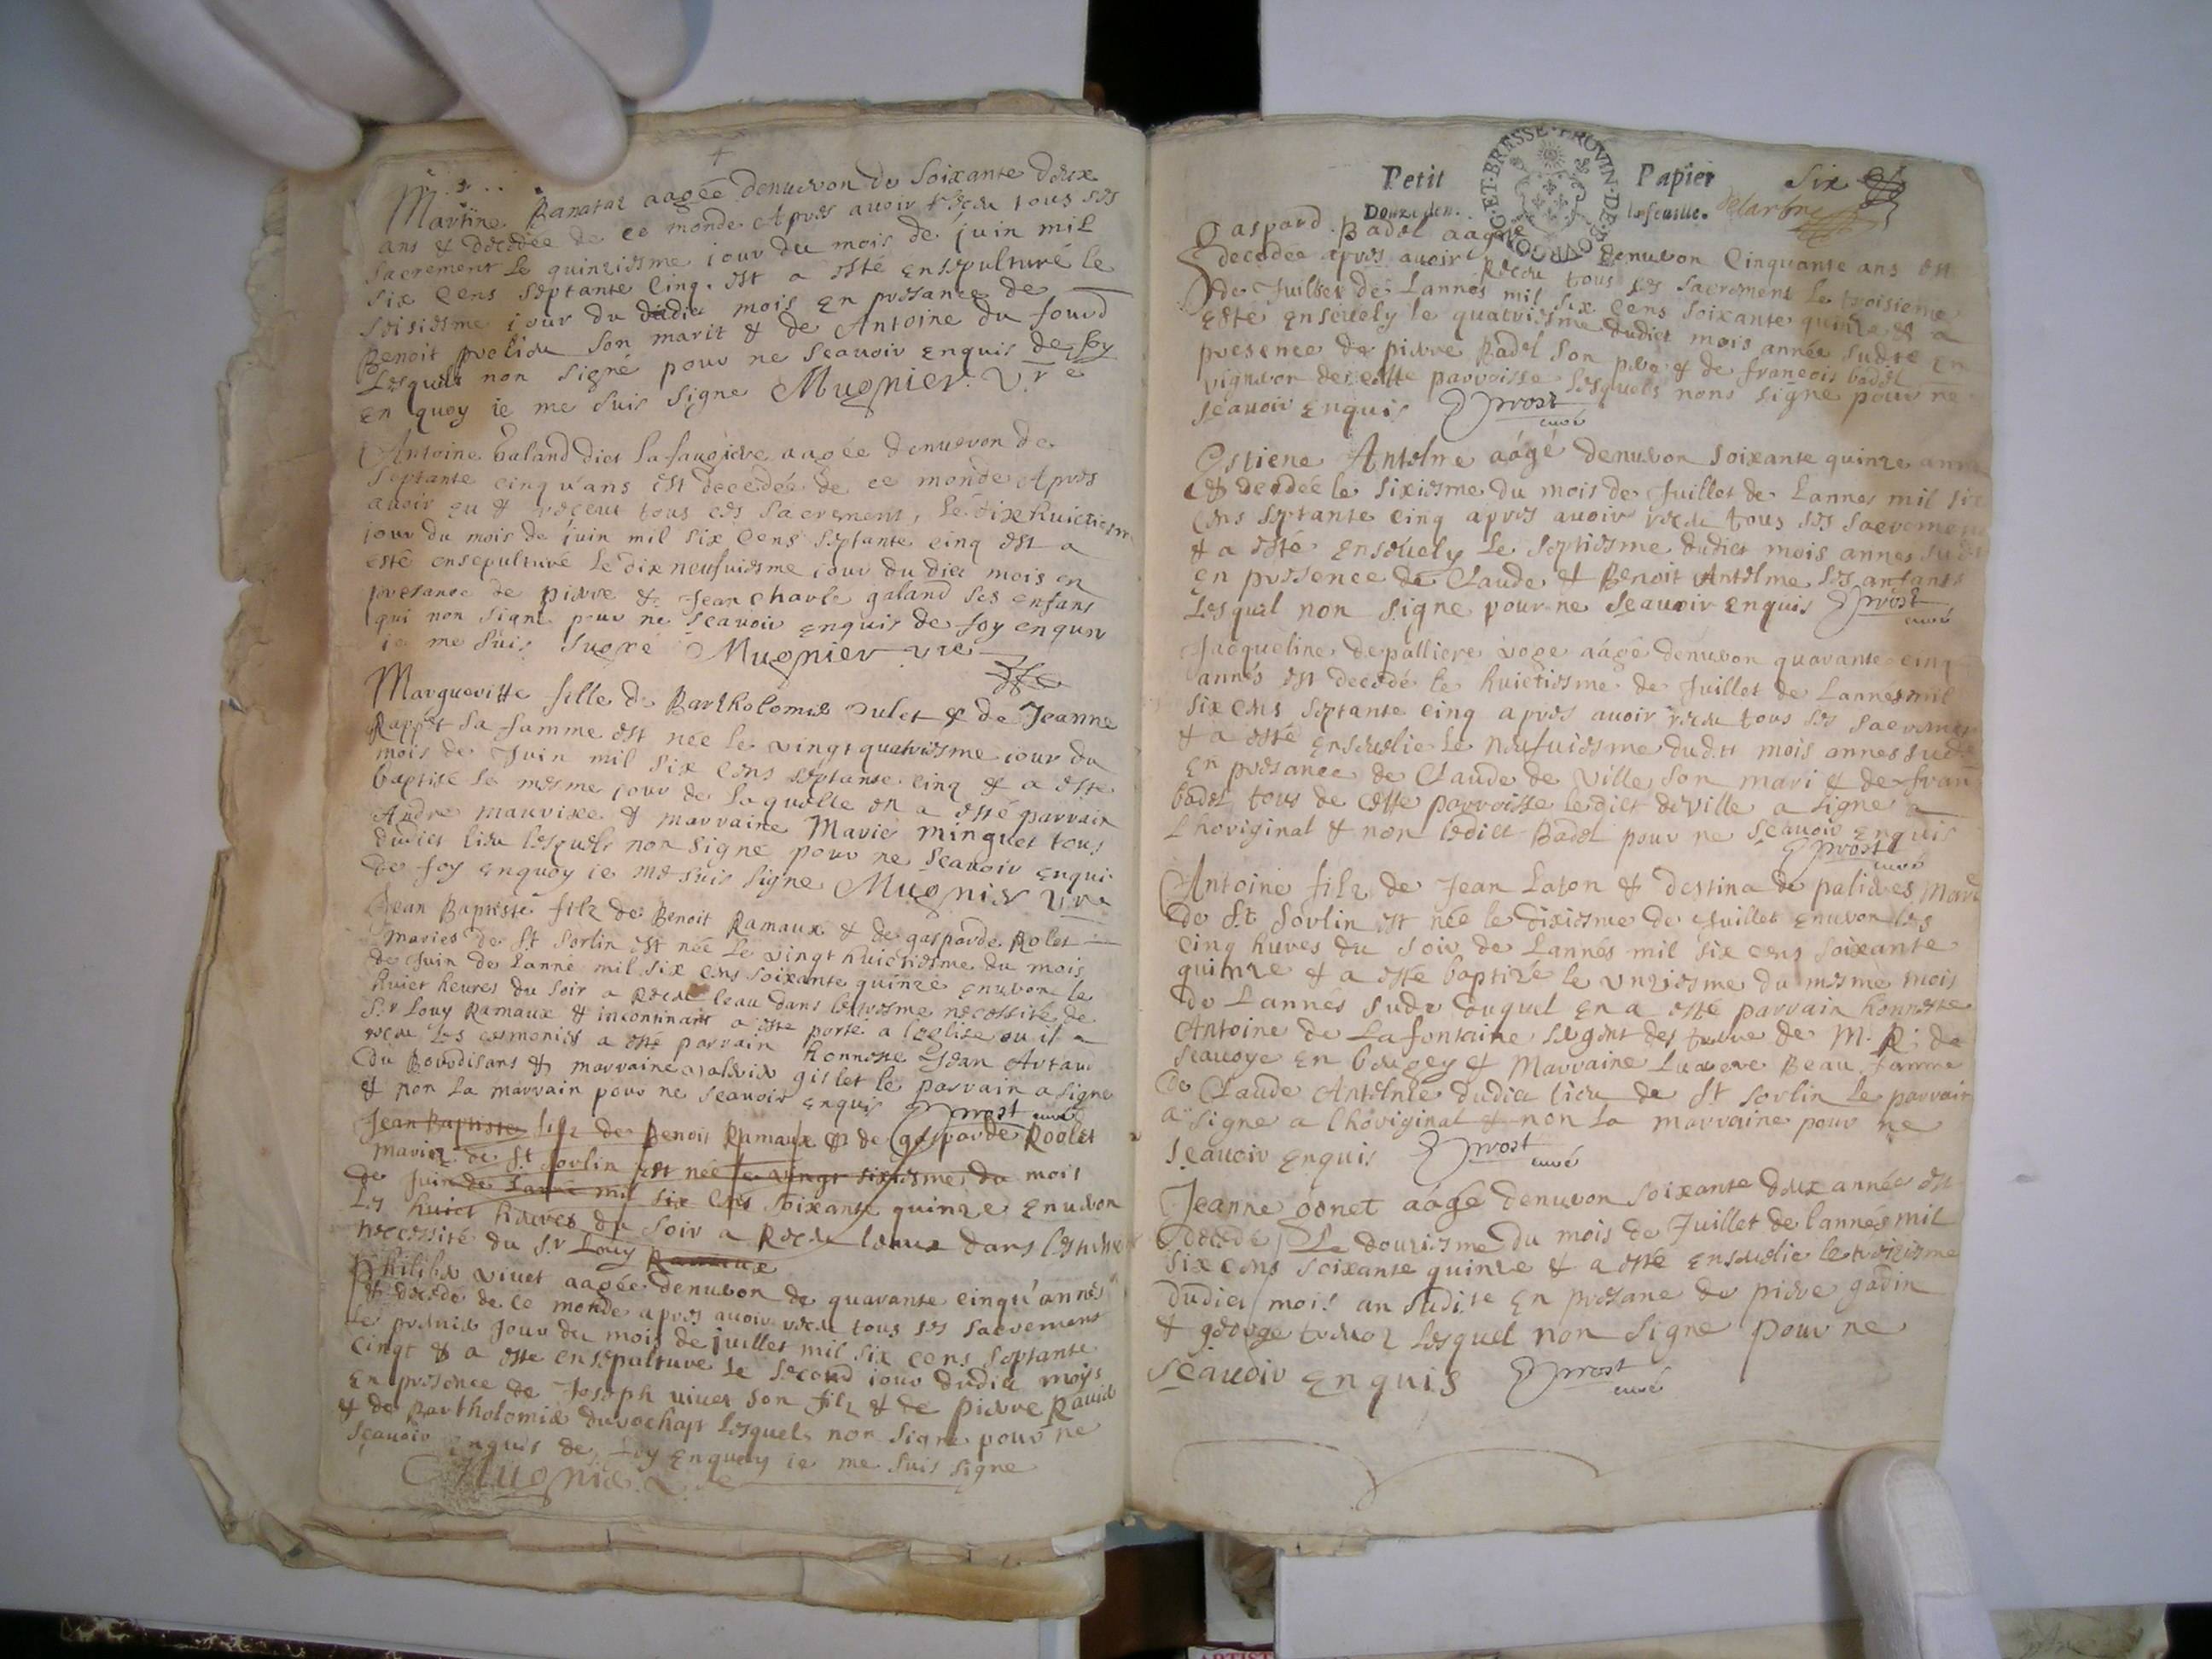 Martine Ranatal aagée denuiron de soixante deux
ans & decedée de ce monde Apres auoir receu tous ses
sacrement le quinziesme iour du mois de juin mil
six cens septante cinq. est a esté ensepulturé le
seiziesme iour du dudict mois en presance de
Benoit son marit & de Antoine du fourd
Lesquels non signé pour ne scauoir enquis de foy
en quoy ie me suis signe Mugnier. Vre
Antoine galand dict la faugiere aagée denueron de
septante cinq ans est decedée de ce monde Apres
auoir eu & receut tous ces sacrement, le dix huictiesme
iour du mois de juin mil six cens septante cinq est a
esté ensepulturé le dix neufuiesme iour du dict mois en
presance de pierre & Jean Charle galand ses enfans
qui non signé pour ne scauoir enquis de foy en quoy
ie me suis Mugnier vre
Margueritte fille de Bartholomie Dulet & de Jeanne
Rappet sa famme est nee le vingt quatriesme iour du
mois de Juin mil six cens septante cinq & a este
baptisé le mesme iour de laquelle en a esté parrain
Andre mauvixe & marraine Marie minguet tous
dudict lieu lesquels non signe pour ne scauoir enqui
de foy enquoy ie me suis signe Mugnier Vre
Jean Baptiste filz de Benoit Ramaux & de gasparde Rolet
maries de St Sorlin est née le vingt huictiesme du mois
de Juin de Lanné mil six cens soixante quinze enuiron le
huict heures du soir a receu leau dans lextresme necessité de
Sr Louy Ramaux & incontinant a este porté a leglise ou il a
receu les ceremonies a este parrain honneste Jean Artaud
du Bourdisans & marraine gislet le parrain a signe
& non la marrain pour ne scauoir enquis Prost curé
Jean Baptiste filz de Benoit Ramaux & de gasparde Roolet
mariez de St Sorlin est née le vingt sixiesme du mois
de Juin de Lanné mil six cens soixante quinze enuiron
les huict heures du soir a Receu leaux dans lextreme
necessité du Sr Louy Ramaux
Philiber viuet aagée denuiron de quarante cinqu'années
est decede de ce monde apres auoir receu tous ses sacremens
le premier jour du mois de juillet mil six cens septante
cinqt & a este ensepulture le second iour dudict moys
en presence de Joseph viuet son filz & de pierre Rauier
& de Bartholomie durochapt lesquels non signe pour ne
sçauoir enquis de foy enquoy ie me suis signe
Mugnier
Petit Papier six
Douze den. la feuille. Delarbre
BOVRGONG·ET·BRESSE·PROVIN·DE
Gaspard Badel aagée denuiron Cinquante ans est
decedée apres auoir Receu tous ses sacrement le troisieme
de Juillet de Lannés mil six cens soixante quinze & a
esté enseuely le quatriesme dudict mois année sudte en
presence de pierre Badel son pere & de francois badel
vigneron de cette parroisse lesquels nons signe pour ne
scauoir enquis Prost curé
Estiene Antelme aágé denuiron soixante quinze anné
& decedée le sixiesme du mois de Juillet de Lannes mil six
cens septante cinq apres auoir receu tous ses sacremen
& a esté enseuely le septiesme dudict mois annes sud
en presence de Claude & Benoit Antelme ses anfans
Lesquel non signe pour ne scauoir enquis Prost curé
Jacqueline depalliere voge aágé denuiron quarante cinq
annés est decedé le huictiesme de Juillet de Lannés mil
six cens septante cinq apres auoir receu tous ses sacremen
& a esté enseuelie le neufuiesme dudt mois annes sudt
en presance de Claude de Ville son mari & de fran
badel tous de cette parroisse ledict deville a signe a
Lhoriginal & non ledict Badel pour ne scauoir enquis
Prost curé
Antoine filz de Jean Laton & destina de palieres Marié
de St Sorlin est née le dixiesme de Juillet enuiron les
cinq hures du soir de Lannés mil six cens soixante
quinze & a este baptizé le unziesme du mesme mois
de Lannés sude duquel en a esté parrain honneste
Antoine de Lafontaine sergent des de M. R: de
scauoye en bougey & Marraine Beau famme
de Claude Antelme dudict lieu de St Sorlin le parrain
a signe a lhoriginal & non la marraine pour ne
scauoir enquis Prost curé
Jeanne gonet aágé denuiron soixante deux année est
decedé Le douziesme du mois de Juillet de lannés mil
six cens soixante quinze & a esté enseuelie le treiziesme
dudict mois an sudite en presane de pierre gadin
& george lesquel non signe pour ne
scauoir enquis Prost
curé